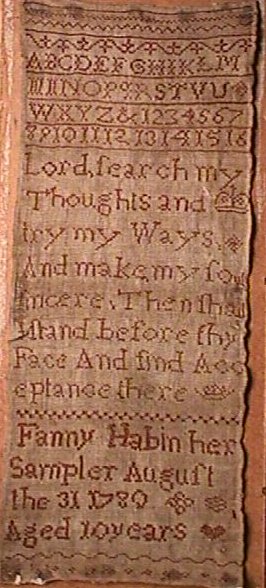 ABCDEFGHIKLM
MNOPQRSTVU
WXYZ&1234567
8910111213141516
Lord, search my
Thoughts and
try my Ways,
And make my sou
sincere, Then shall
I stand before thy
Face And find Acc
eptance there
Fanny Habin her
Sampler August
the 31 1789
Aged 10 years